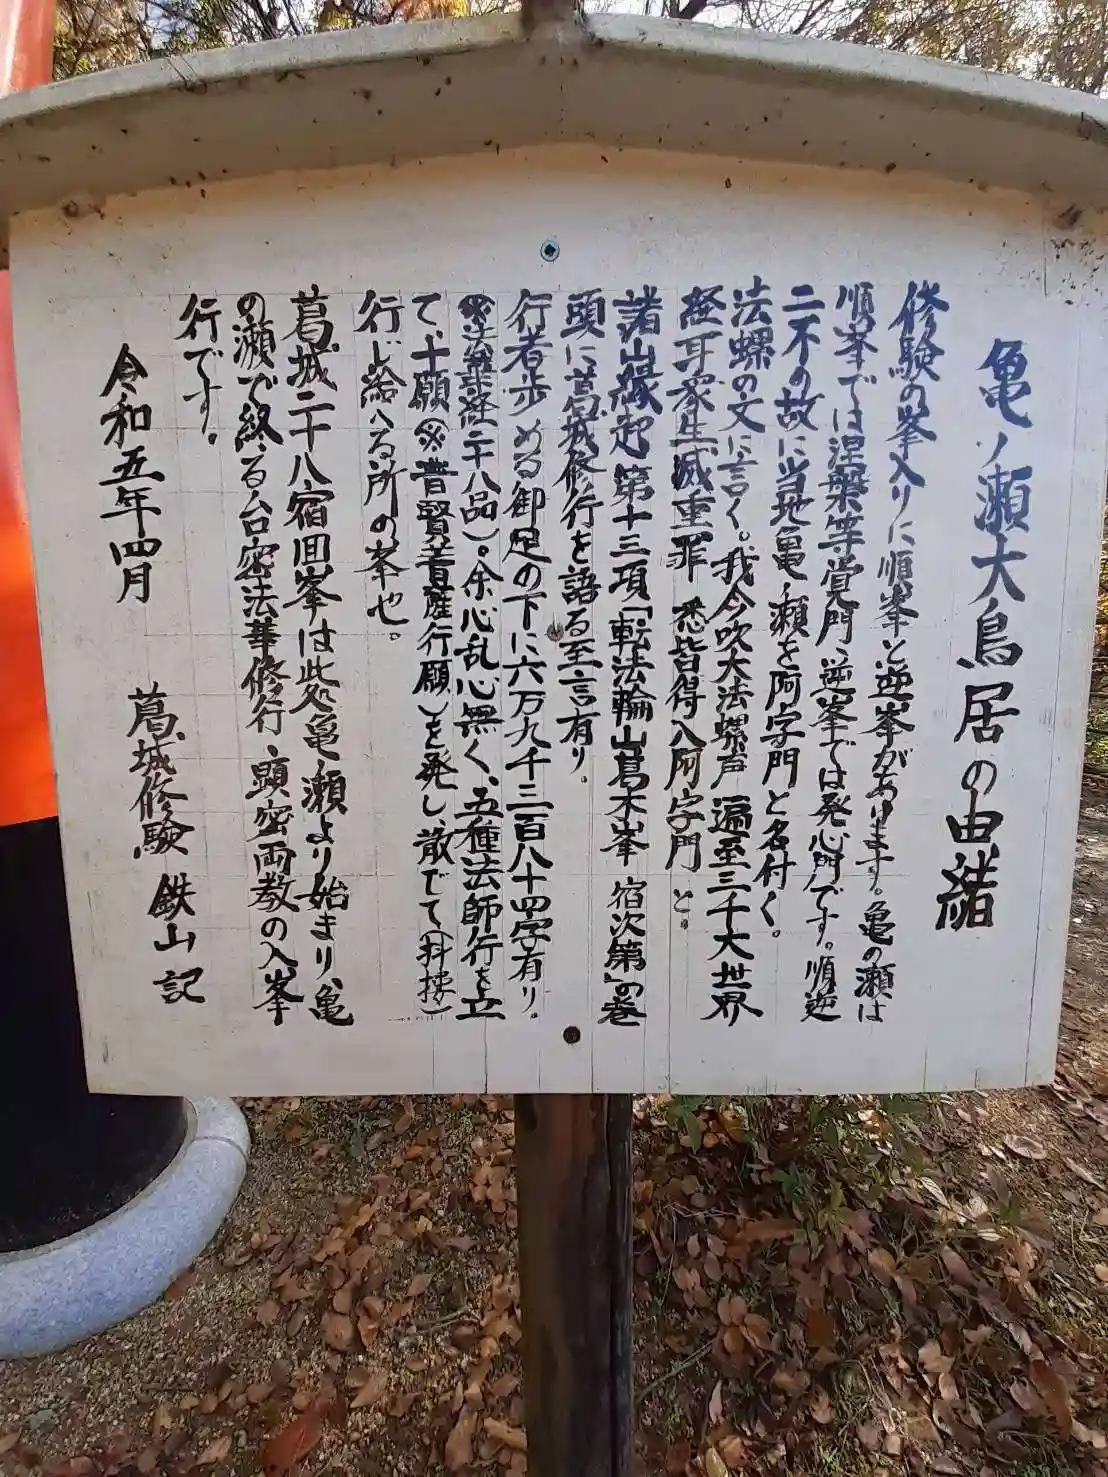 亀ノ瀬大鳥居の由緒
修験の峯入りに順峯と逆峯があります。亀の瀬は
順峯では涅槃等覚門、逆峯では発心門です。順逆
二不の故に当地亀ノ瀬を阿字門と名付く。
法螺の文に言く。我今吹大法螺声 遍至三千大世界
経耳衆生滅重罪 悉皆得入阿字門 と。
諸山縁起第十三項「転法輪山葛木峯 宿次第」の巻
頭に葛城修行を語る至言有り。
行者歩める御足の下に六万九千三百八十四字有り。
(※法華経二十八品)。余心乱心無く、五種法師行を立
て、十願(※普賢菩薩行願)を発し、散でて(抖擻)
行じ給へる所の峯也。
葛城二十八宿回峯は此処亀ノ瀬より始まり、亀
の瀬で終る台密法華修行、顕密両教の入峯
行です。
令和五年四月 葛城修験 鉄山 記